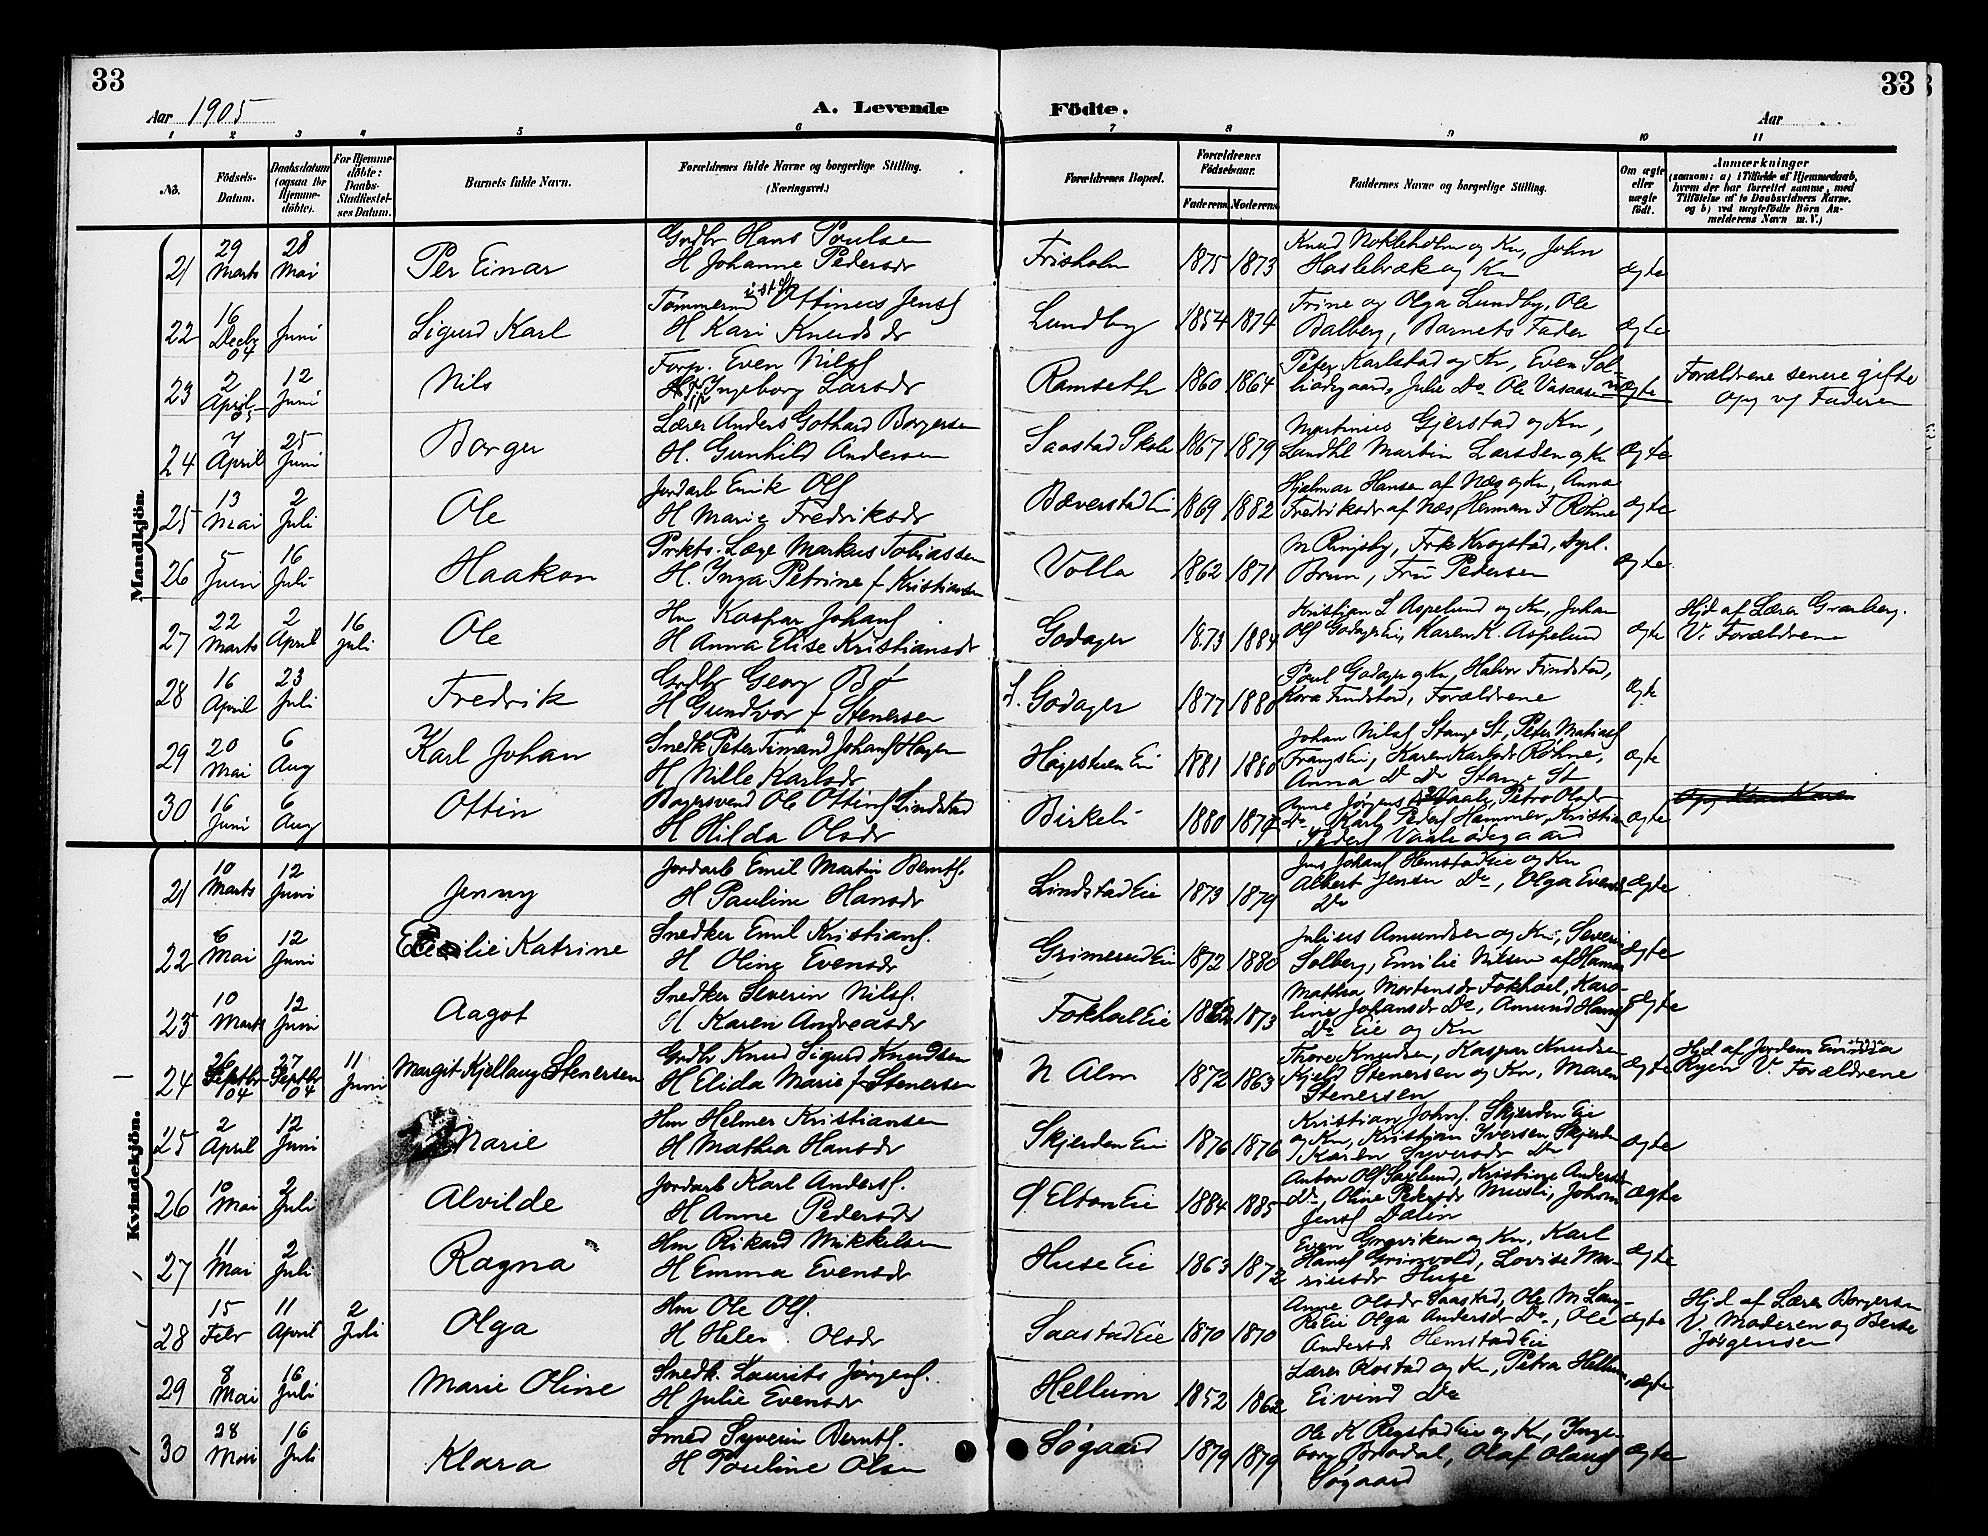 33
33
Aar 1905
A. Levende
Födte.
Aar
1 2 3 4 5 6 7 8 9 10 11
No.
Födsels-Datum.
Daabsdatum (ogsaa for Hjemme-döbte).
For Hjemme-döbte: Daabs-Stadfæstel-ses Datum.
Barnets fulde Navn.
Forældrenes fulde Navne og borgerlige Stilling. (Næringsvei.)
Forældrenes Bopæl.
Forældrenes Födselsaar.
Faderens Moderens
Faddernes Navne og borgerlige Stilling.
Om ægte eller uægte födt.
Anmærkninger
(saasom: a) i Tilfælde af Hjemmedaab, hvem der har forrettet samme, med Tilföielse af to Daabsvidners Navne, og b) ved uægtefödte Börn An-melderens Navn m. V.)
Mandkjön.
21 29 Marts 28 Mai Per Einar
Grdbr Hans Poulsen
H Johanne Pedersdr
Frisholm 1875 1873
Knud Nokleholm og Kn, John
Haslebræk og Kn
ægte
22 16 Decbr 04 Juni Sigurd Karl
Tømmermd Ottinius Jensf
H Kari Knudsdr
Lundby 1854 1874
Trine og Olga Lundby, Ole
Balberg, Barnets Fader
ægte
23 2 April 05 12 Juni Nils
Forp. Even Nilsf
Ingeborg Larsdr
Ramseth 1860 1864
Peter Karlstad og Kn, Even Sol-
Julie Do Ole Vasaasen
uægte
Forældrene senere gifte
Opg vf Faderen
24 7 April 25 Juni Borger
Lærer Anders Gothard Borgersen
H. Gunhild Andersen
Saastad Skole 1867 1879
Martinius Gjerstad og Kn,
Landhl Martin Larsden og Kn
ægte
25 13 Mai 2 Juli Ole
Jordarb Emik Olsf
H Marie Fredriksdr
Bæverstad Ei 1869 1882
Hjelmar Hansen af Næs og Kn, Anna
Fredriksdr af Næs, Herman F Røhne
ægte
26 5 Juni 16 Juli Haakon
Prkts. Læge Markus Tobiassen
H. Inga Petrine f Kristiansen
Volla 1862 1871
M Ringsby, Frk Krogstad, Dyrl.
Brun, Fru Pedersen
ægte
27 22 Marts 2 April 16 Juli Ole
Hm Kaspar Johansf
H Anna Elise Kristiansdr
Godager 1873 1884
Kristian L Aspelund og Kn, Johan
Olsf Godager Ei, Karen K. Aspelund
ægte
Hjd af Lærer Granberg.
V. Forældrene
28 16 April 23 Juli Fredrik
Grdbr Georg Bø
H Gundvor f Stenersen
L. Godager 1877 1880
Poul Godager og Kn, Halvor Findstad,
Kora Findstad, Forældrene
ægte
29 20 Mai 6 Aug Karl Johan
Snedk Peter Timand Johansf Hagen
H Nille Karlsdr
Hagestuen Ei 1881 1880
Johan Nilsf Stange St, Peter Matiasf
Frangs Ei, Karen Karlsdr Røhne,
Anna Do Do Stange St
ægte
30 16 Juni 6 Aug Ottin
Bagersvend Ole Ottinsf Lindstad
H Hilda Olsdr
Birkeli 1880 1874
Anne Jørgens Vaale, Petra Olsdr
Do, Karl Pedersf Hammer, Kristian
Pedersf Vaale ødegaard
ægte
Kvindekjön.
21 10 Marts 12 Juni Jenny
Jordarb Emil Martin Berntsf.
H Pauline Hansdr
Lindstad Eie 1873 1879
Jens Johansf Hemstad Eie og Kn
Albert Jensen Do, Olga Evensdr
Do
ægte
22 6 Mai 12 Juni Katrine
Snedker Emil Kristiansf.
H Oline Evensdr
Grimerud Ei 1872 1880
Julius Amundsen og Kn, Severin
Solberg, Emilie Nilsen af Hamar
ægte
23 10 Marts 12 Juni Aagot
Snedker Severin Nilsf.
H Karen Andreasdr
Fokhoel Eie 1873
Mathea Mortensdr Fokhoel, Karo-
line Johansdr Do, Amund Hansf
Do Eie og Kn
ægte
24 26 Septbr 04 27 Septbr 04 11 Juni Margit Kjellaug Stenersen
Grdbr Knud Sigurd Knudsen
H Elida Marie f Stenersen
N Alm 1872 1863
Thore Knudsen, Kaspar Knudsen
Kjeld Stenersen og Kn, Maren
Stenersen
ægte
Hjd af Jordem
Ryen V Forældrene
25 2 April 12 Juni Marie
Hm Helmer Kristiansen
H Mathea Hansdr
Skjerden Ei 1876 1876
Kristian Johnsf. Skjerden Ei
og Kn, Kristian Iversen Skjerden
Karen Syversdr Do
ægte
26 10 Mai 2 Juli Alvilde
Jordarb Karl Andersf.
H Anne Pedersdr
Ø Elton Eie 1884 1885
Anton Olsf Saxlund, Kristiane Andersdr
Do, Oline Petersdr Musli, Johan
Jensf Dalin
ægte
27 11 Mai 2 Juli Ragna
Hm Rikard Mikkelsen
H Emma Evensdr
Huse Eie 1863 1872
Even Greviken og Kn, Karl
Hansf Grimvold, Lovise Ma-
riusdr Huse
ægte
28 15 Febr 11 April 2 Juli Olga
Hm Ole Olsf.
H Helen Olsdr
Saastad Eie 1870 1870
Anne Olsdr Saastad, Ole M Lang-
Eie Olga Andersdr Do, Ole
Andersf Hemstad Eie
ægte
Hjd af Lærer Borgersen
V. Moderen og Berthe
Jørgensen
29 8 Mai 16 Juli Marie Oline
Snedk. Laurits Jørgensf.
H Julie Evensdr
Hellum 1852 1862
Lærer Rostad og Kn, Petra Hellum,
Eivind Do
ægte
30 28 Mai 16 Juli Klara
Smed Syverin Berntsf.
H Pauline Olsen
Søgaard 1879 1879
Ole K Regstad Eie og Kn, Inge-
borg Brodal, Olaf Olausf
Søgaard
ægte